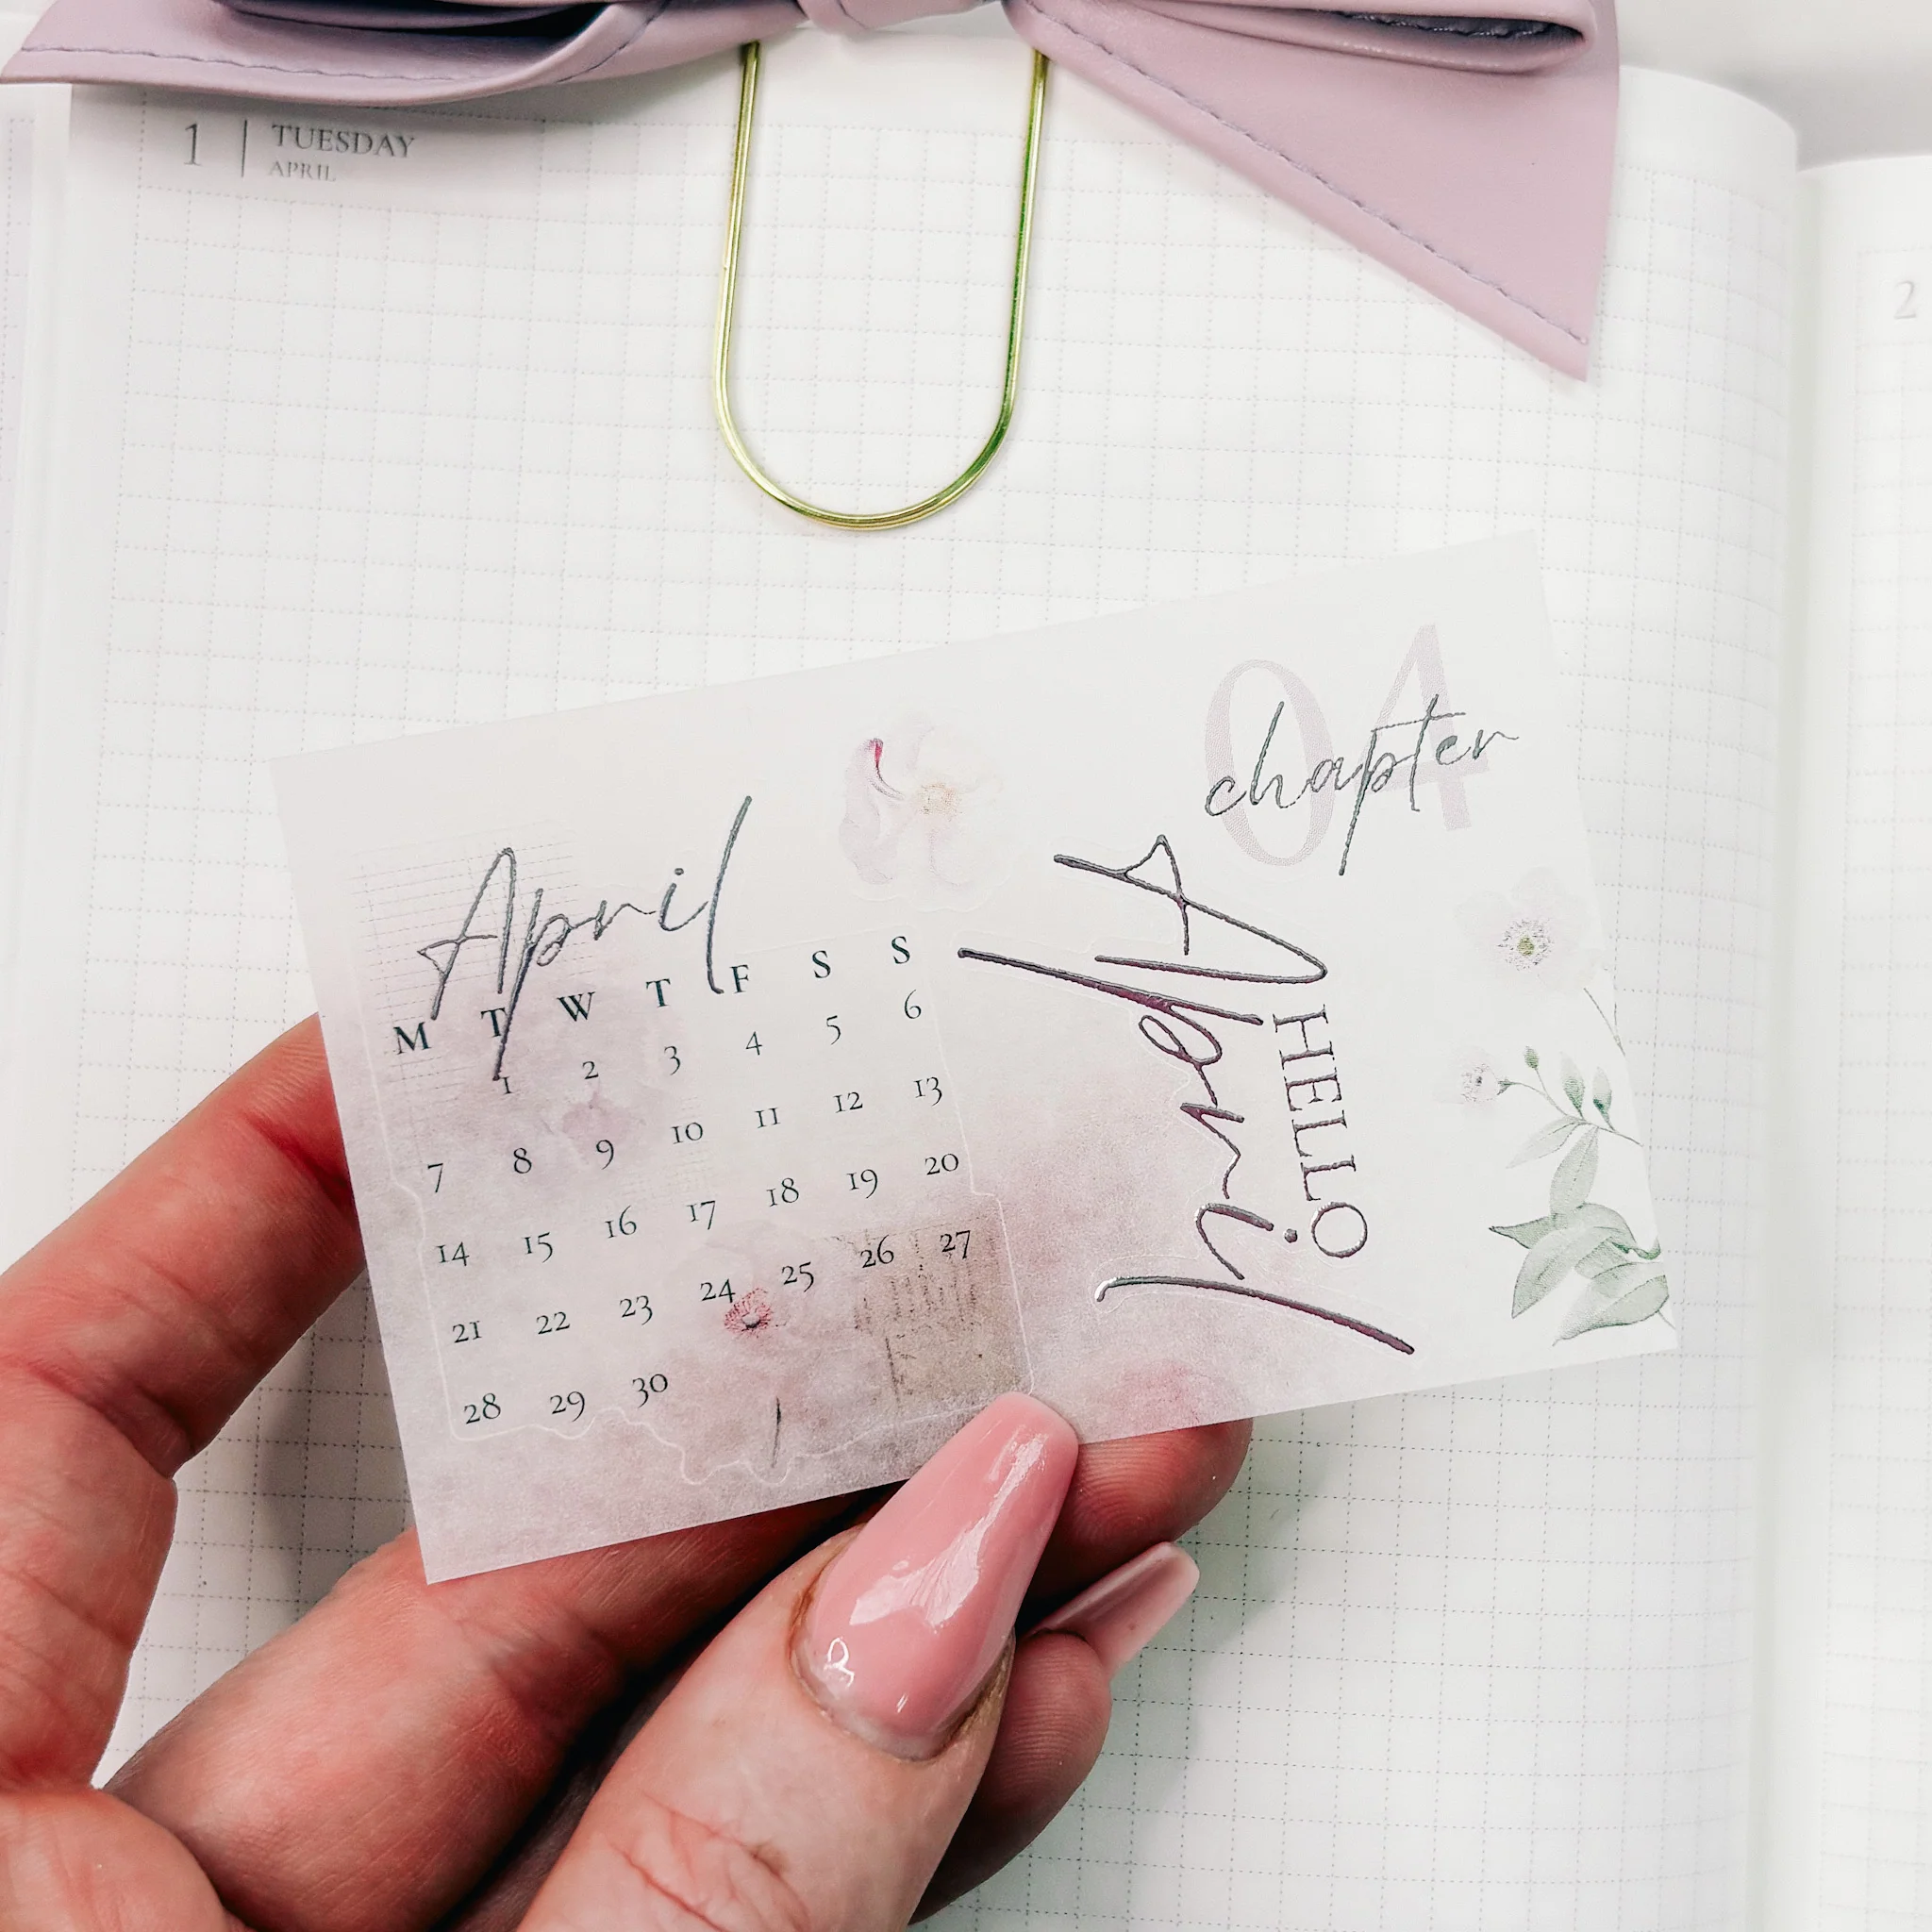 1 | TUESDAY
APRIL
2
April
M T W T F S S
1 2 3 4 5 6
7 8 9 10 11 12 13
14 15 16 17 18 19 20
21 22 23 24 25 26 27
28 29 30
04
chapter
HELLO
April